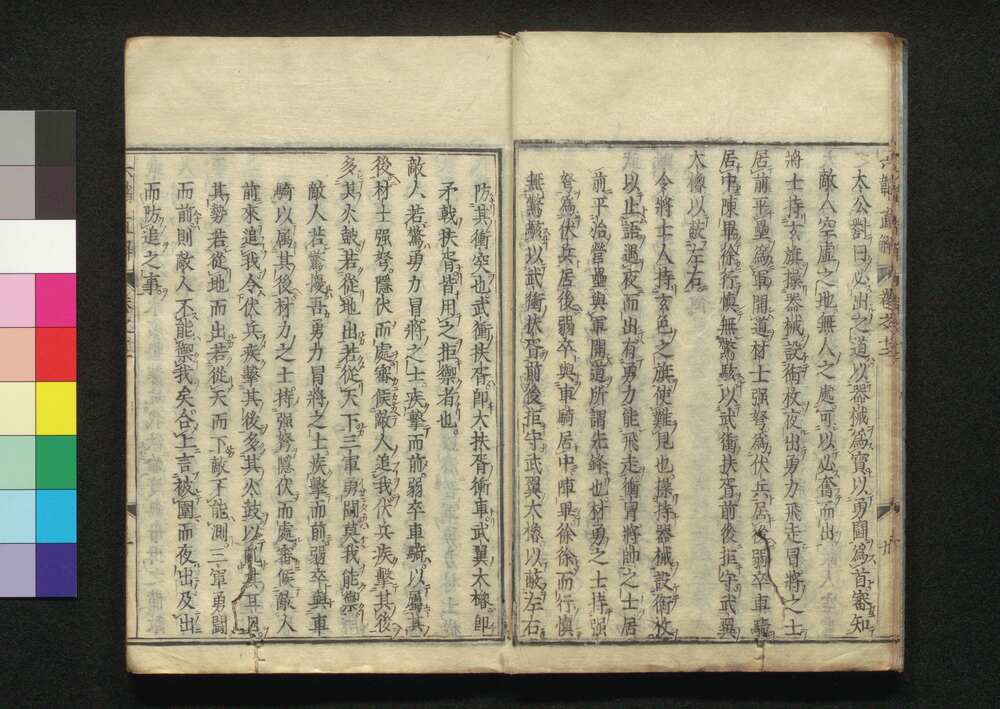 太公對曰必出之道以器械爲寶以勇鬪爲首審知
敵人空虛之地無人之處可以必奮而出
將士持玄旗操器械設銜枚夜出勇力飛走冒將之士
居前平壘爲軍開道材士强弩爲伏兵居後弱卒車騎
居中陳畢徐行慎無驚駭以武衝扶胥前後拒守武翼
大櫓以蔽左右
令將士人持玄色之旗使難見也操持器械設銜枚
以止諠遇夜而出有勇力能飛走衝冒將帥之士居
前平治營壘與軍開道所謂先鋒也材勇之士持强
弩爲伏兵居後弱卒與車騎居中陣畢徐徐而行慎
無驚駭以武衝扶胥前後拒守武翼大櫓以蔽左右
防其衝突也武衝扶胥卽大扶胥衝車武翼大櫓卽
矛戟扶胥皆用之拒禦者也
敵人若驚勇力冒將之士疾擊而前弱卒車騎以屬其
後材士强弩隱伏而處審候敵人追我伏兵疾擊其後
多其火鼓若從地出若從天下三軍勇鬪莫我能禦
敵人若驚陵吾勇力冒將之士疾擊而前弱卒與車
騎以属其後材力之士持强弩隱伏而處審候敵人
前來追我令伏兵疾擊其後多其火鼓以亂其耳目
其勢若從地而出若從天而下敵不能測三軍勇鬪
而前則敵人不能禦我矣合上言被圍而夜出及出
而防追之事